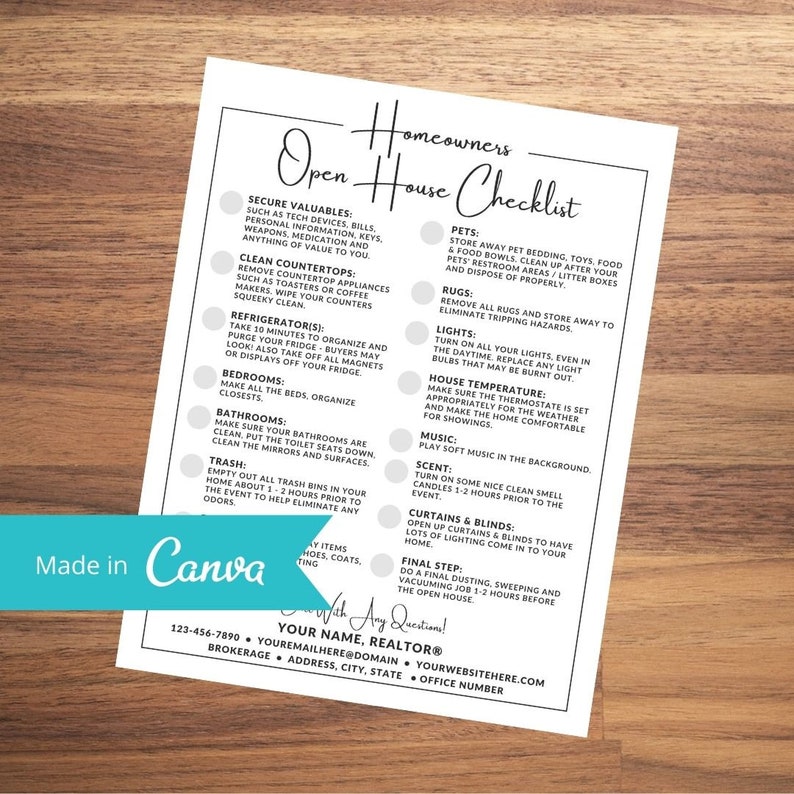 Homeowners
Open House Checklist
SECURE VALUABLES:
SUCH AS TECH DEVICES, BILLS,
PERSONAL INFORMATION, KEYS,
WEAPONS, MEDICATION AND
ANYTHING OF VALUE TO YOU.
CLEAN COUNTERTOPS:
REMOVE COUNTERTOP APPLIANCES
SUCH AS TOASTERS OR COFFEE
MAKERS. WIPE YOUR COUNTERS
SQUEEKY CLEAN.
REFRIGERATOR(S):
TAKE 10 MINUTES TO ORGANIZE AND
PURGE YOUR FRIDGE - BUYERS MAY
LOOK! ALSO TAKE OFF ALL MAGNETS
OR DISPLAYS OFF YOUR FRIDGE.
BEDROOMS:
MAKE ALL THE BEDS, ORGANIZE
CLOSESTS.
BATHROOMS:
MAKE SURE YOUR BATHROOMS ARE
CLEAN, PUT THE TOILET SEATS DOWN,
CLEAN THE MIRRORS AND SURFACES.
TRASH:
EMPTY OUT ALL TRASH BINS IN YOUR
HOME ABOUT 1 - 2 HOURS PRIOR TO
THE EVENT TO HELP ELIMINATE ANY
ODORS.
ITEMS
COATS,
PETS:
STORE AWAY PET BEDDING, TOYS, FOOD
& FOOD BOWLS. CLEAN UP AFTER YOUR
PETS' RESTROOM AREAS / LITTER BOXES
AND DISPOSE OF PROPERLY.
RUGS:
REMOVE ALL RUGS AND STORE AWAY TO
ELIMINATE TRIPPING HAZARDS.
LIGHTS:
TURN ON ALL YOUR LIGHTS, EVEN IN
THE DAYTIME. REPLACE ANY LIGHT
BULBS THAT MAY BE BURNT OUT.
HOUSE TEMPERATURE:
MAKE SURE THE THERMOSTATE IS SET
APPROPRIATELY FOR THE WEATHER
AND MAKE THE HOME COMFORTABLE
FOR SHOWINGS.
MUSIC:
PLAY SOFT MUSIC IN THE BACKGROUND.
SCENT:
TURN ON SOME NICE CLEAN SMELL
CANDLES 1-2 HOURS PRIOR TO THE
EVENT.
CURTAINS & BLINDS:
OPEN UP CURTAINS & BLINDS TO HAVE
LOTS OF LIGHTING COME IN TO YOUR
HOME.
FINAL STEP:
DO A FINAL DUSTING, SWEEPING AND
VACUUMING JOB 1-2 HOURS BEFORE
THE OPEN HOUSE.
Made in Canva
With Any Questions!
YOUR NAME, REALTOR®
123-456-7890 • YOUREMAILHERE@DOMAIN • YOURWEBSITEHERE.COM
BROKERAGE • ADDRESS, CITY, STATE • OFFICE NUMBER